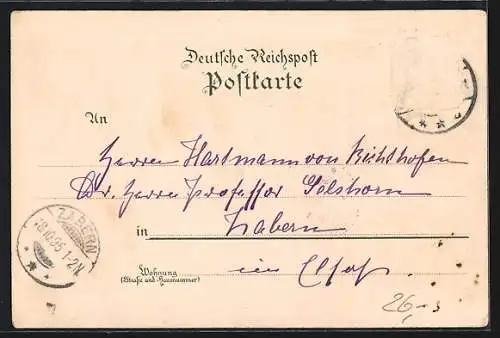 Deutsche Reichspost
Postkarte
An
Herrn Hartmann von Richthofen
Adr. Herrn Professor Gelshorn
in Zabern
Wohnung im Elsaß
(Straße und Hausnummer)
ZABERN
1-2N
26,-